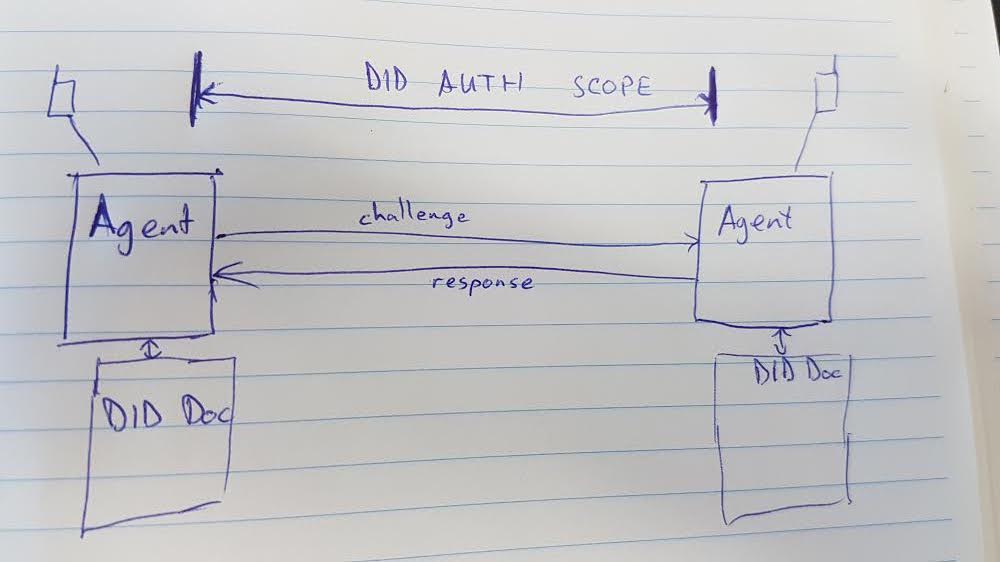 DID AUTH SCOPE
Agent
challenge
Agent
response
DID Doc
DID Doc